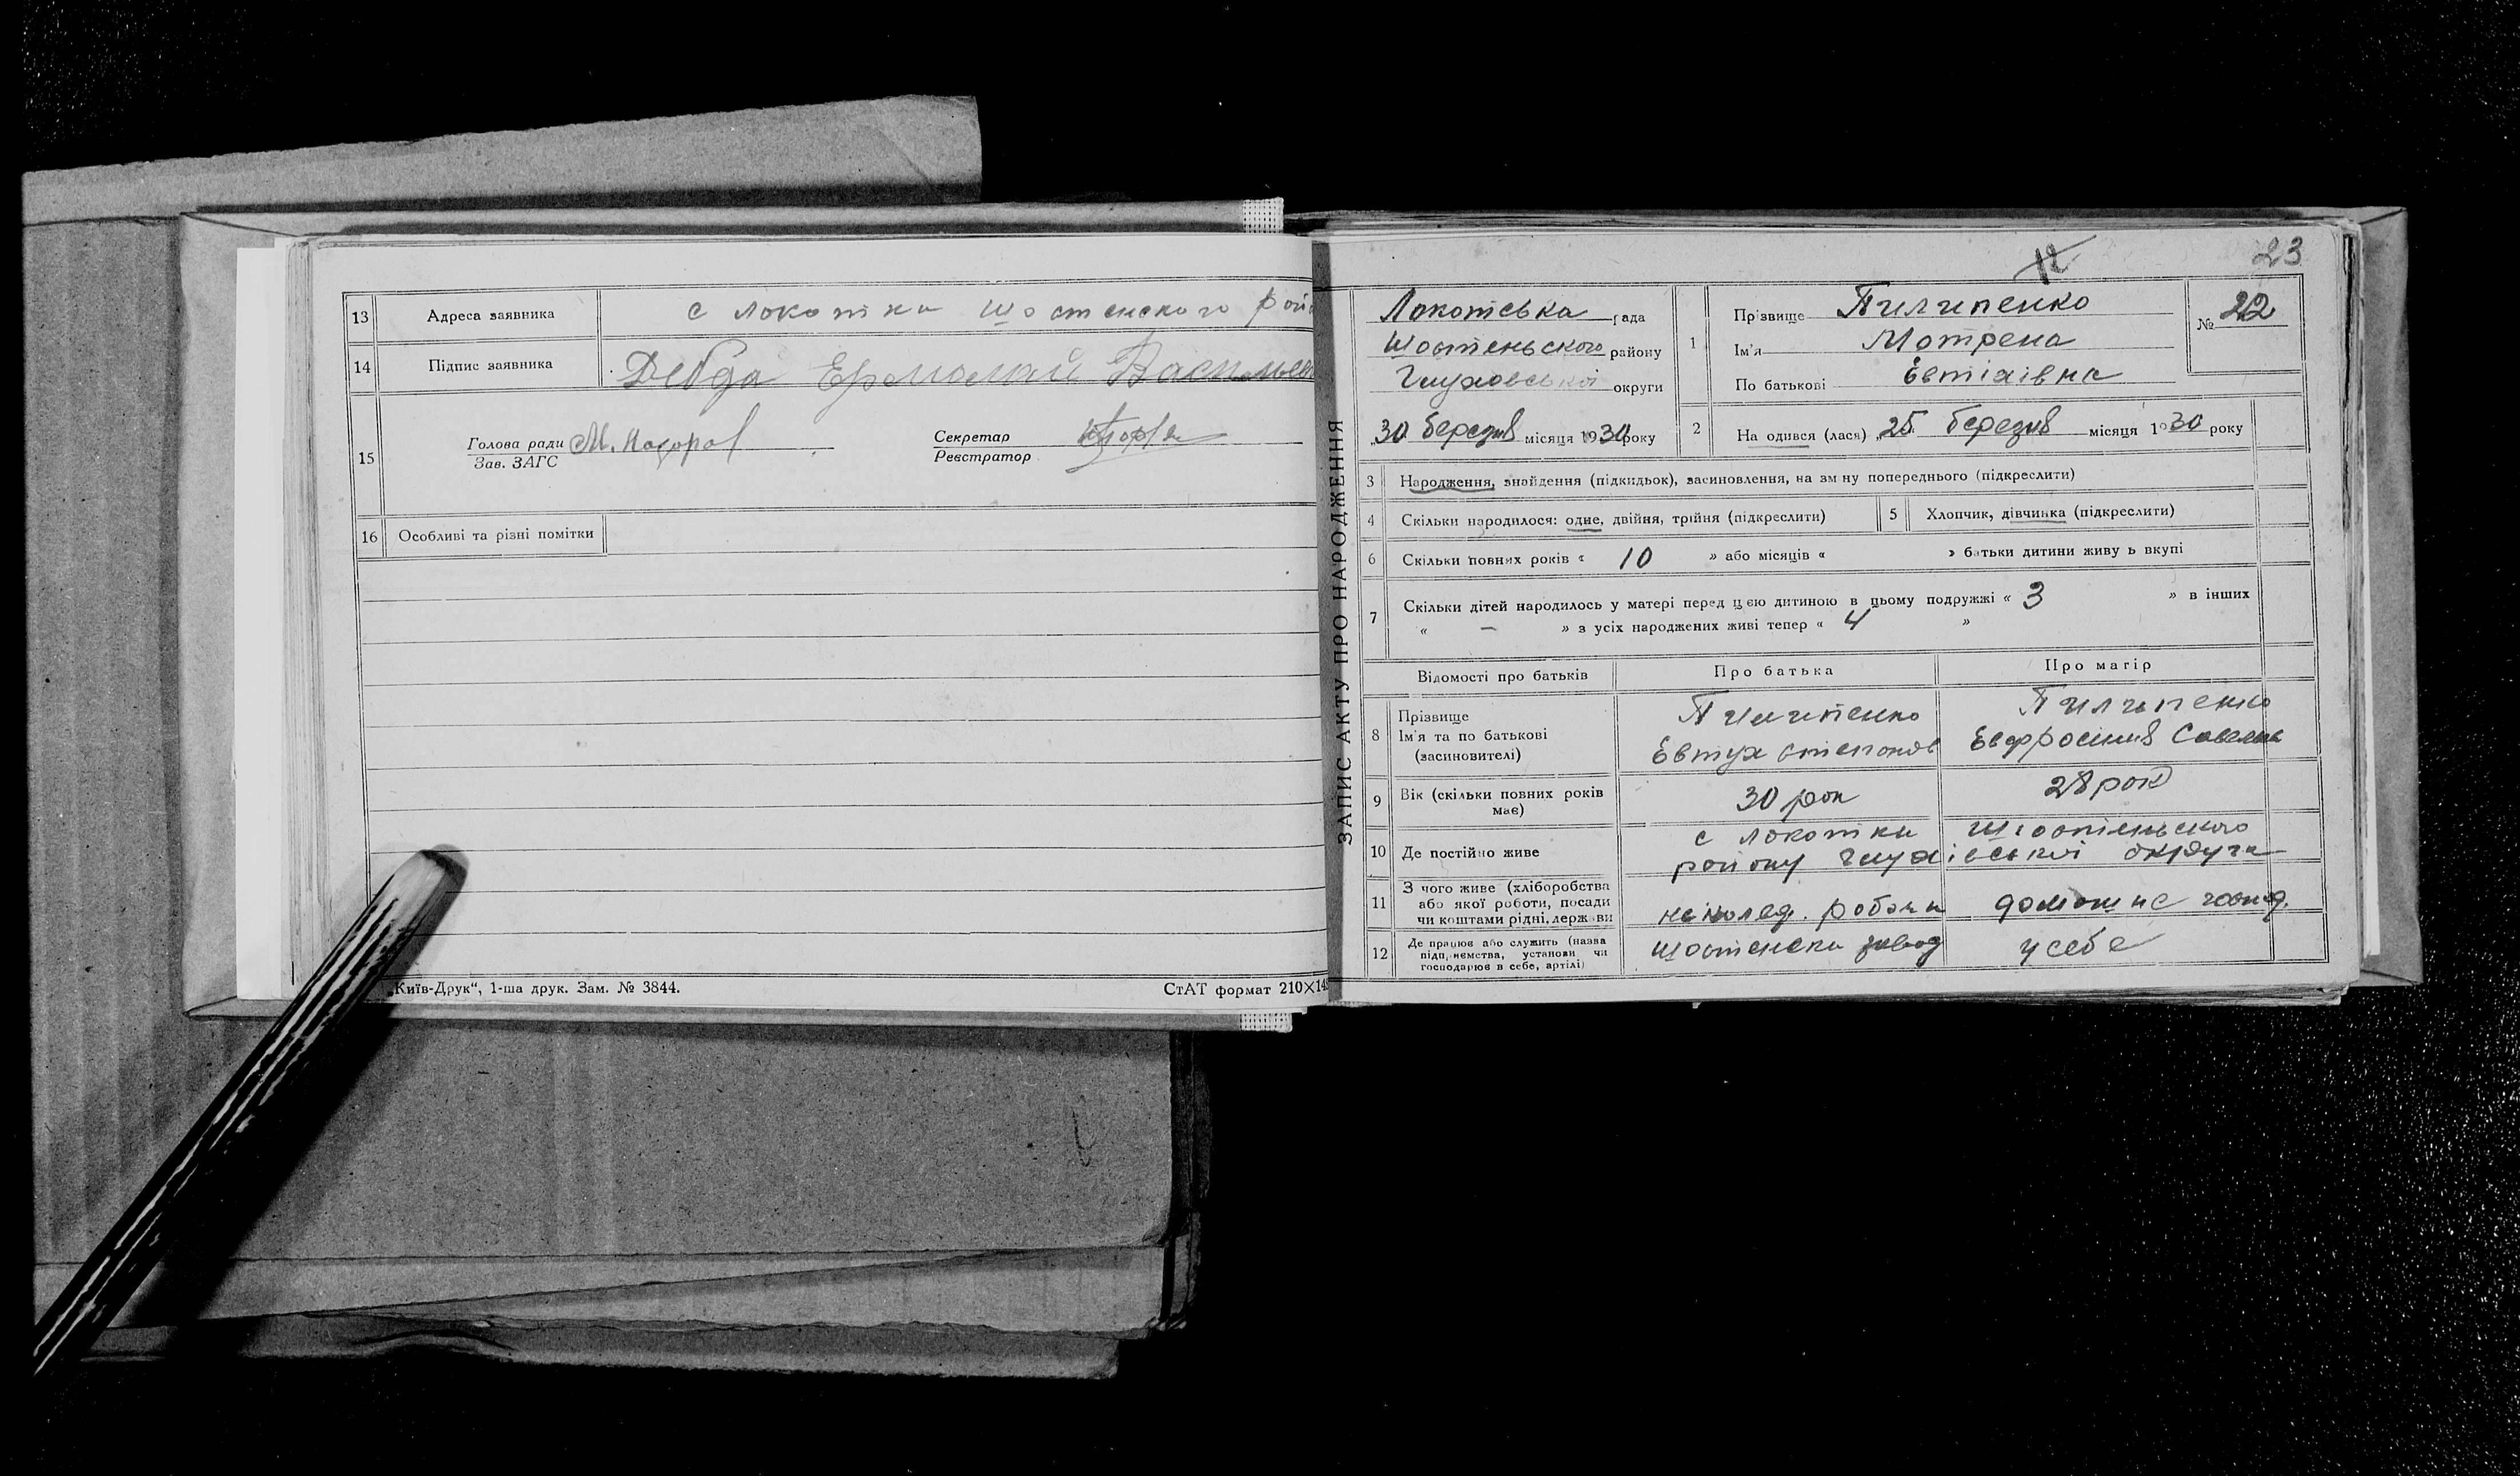 13 Адреса заявника с Локотки Шостенского рай
14 Підпис заявника Дебда Ермолай Васильев
15 Голова ради
Зав. ЗАГС
Секретар
Реєстратор
16 Особливі та різні помітки
„Київ-Друк“, 1-ша друк. Зам. № 3844. СтАТ формат 210×14
12 23
ЗАПИС АКТУ ПРО НАРОДЖЕННЯ
Локотська рада
Шостеньського району
Глуховської округи
„30 березня місяця 1930 року
1 Прізвище Пилипенко
Ім'я Мотрена
По батькові Євтіхівна
№ 22
2 На одився (лася) „25 березня місяця 1930 року
3 Народження, знайдення (підкидьок), засиновлення, на зм ну попереднього (підкреслити)
4 Скільки народилося: одне, двійня, трійня (підкреслити) 5 Хлопчик, дівчинка (підкреслити)
6 Скільки повних років « 10 » або місяців « » батьки дитини живу ь вкупі
7 Скільки дітей народилось у матері перед цією дитиною в цьому подружжі « 3 » в інших
« – » з усіх народжених живі тепер « 4 »
Відомості про батьків Про батька Про матір
8 Прізвище
Ім'я та по батькові
(засиновителі)
Пилипенко
Євтух Степанов
Пилипенко
Евфросинія
9 Вік (скільки повних років має) 30 рок 28 рок
10 Де постійно живе с Локотки Шостеньського
району Глухівської округи
11 З чого живе (хліборобства
або якої роботи, посади
чи коштами рідні, держави
робочи
домашнє господ.
12 Де працює або служить (назва
підп, иємства, установи чи
господарює в себе, артілі)
Шостенски завод
у себе